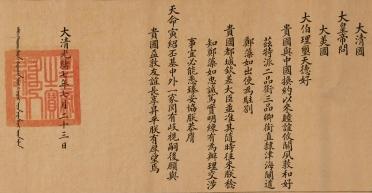 大清國
大皇帝問
大美國
大伯理璽天德好
貴國與中國換約以來睦誼攸關夙敦和好
茲特派二品銜三品卿銜直隸津海關道
鄭藻如出使為駐劄
貴國都城欽差大臣並准其隨時往來朕稔
知鄭藻如忠誠篤實明練有為辦理交涉
事宜必能悉臻妥協朕恭膺
天命寅紹丕基中外一家罔有歧視嗣後願與
貴國益敦友誼長享昇平朕有厚望焉
大清光緒七年七月二十三日